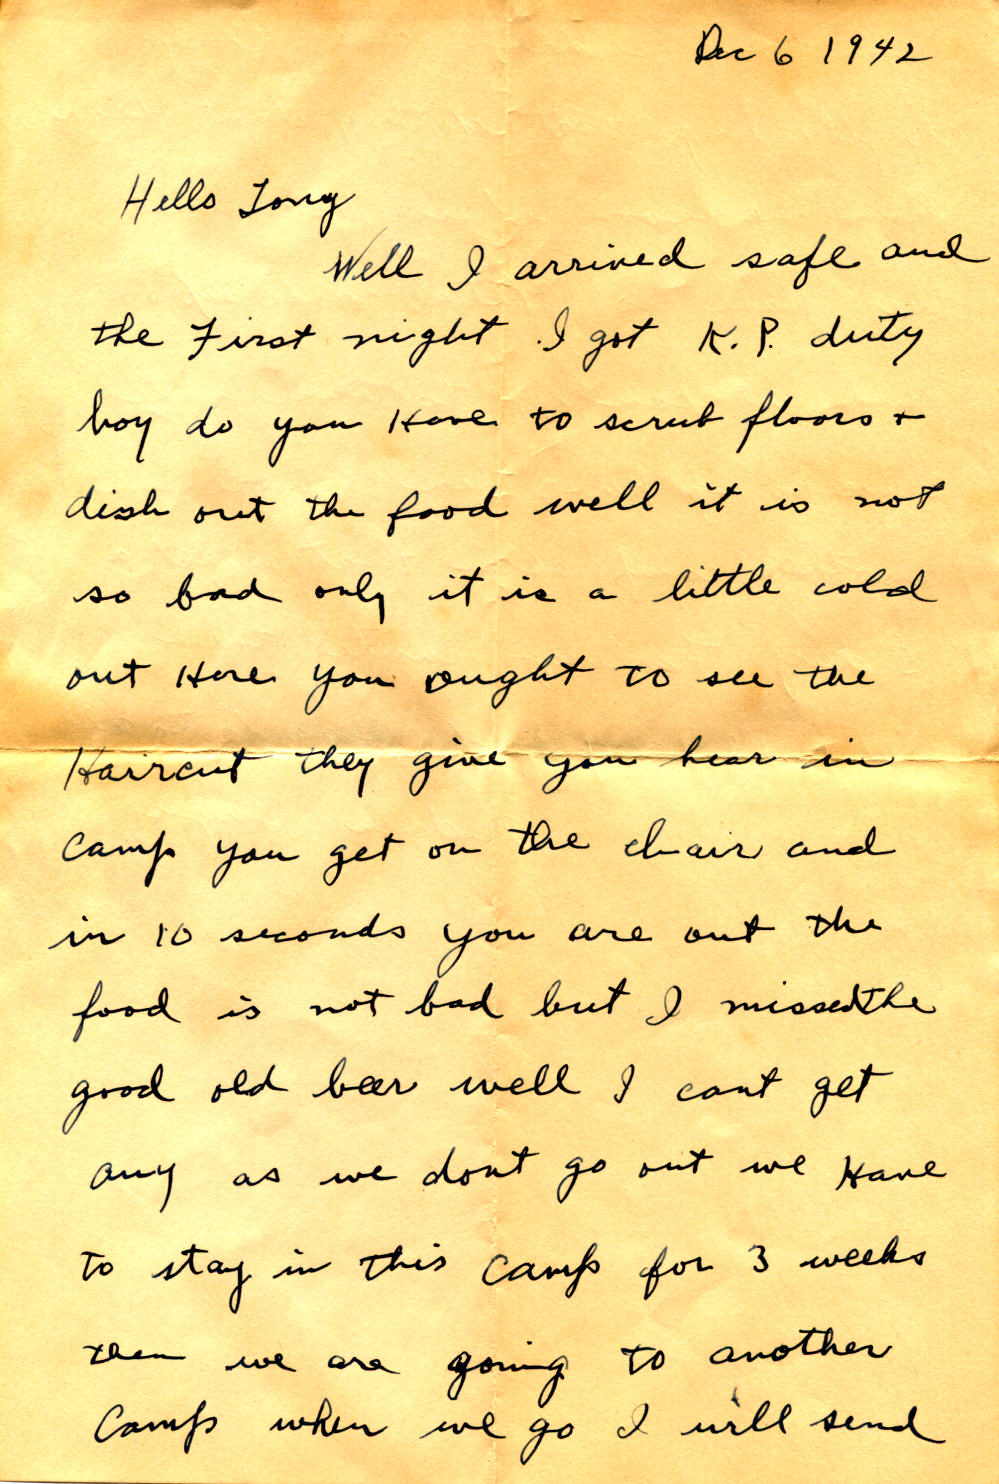 Dec 6 1942
Hello Tony
Well I arrived safe and
the First night I got K.P. duty
boy do you Have to scrub floors +
dish out the food well it is not
so bad only it is a little cold
out Here you ought to see the
Haircut they give you hear in
Camp you get on the chair and
in 10 seconds you are out the
food is not bad but I missed the
good old beer well I cant get
any as we dont go out we Have
to stay in this Camp for 3 weeks
then we are going to another
Camp when we go I will send